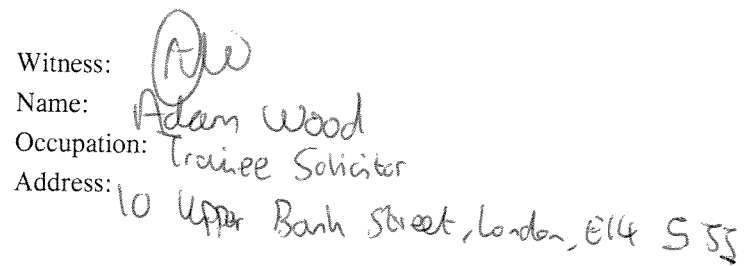 Witness: AW
Name: Adam Wood
Occupation: Trainee Solicitor
Address: 10 Upper Bank Street, London, E14 5JJ